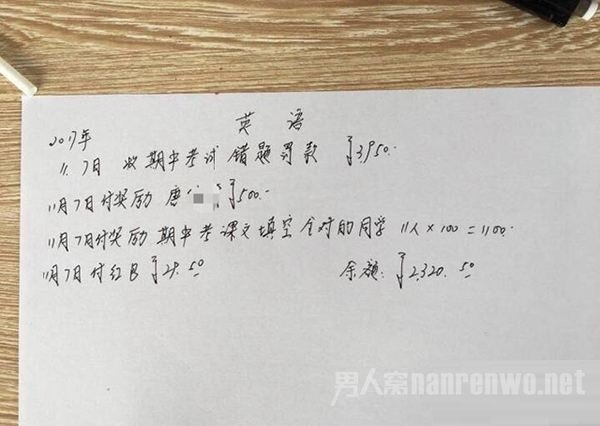 英语
2017年
11.7日 收期中考试错题罚款 ¥3,950.
11月7日付奖励 唐 ¥500.
11月7日付奖励 期中考课文填空全对的同学 11人×100=1100.
11月7日付红包 ¥29.50 余额: ¥2,320.50
男人窝nanrenwo.net